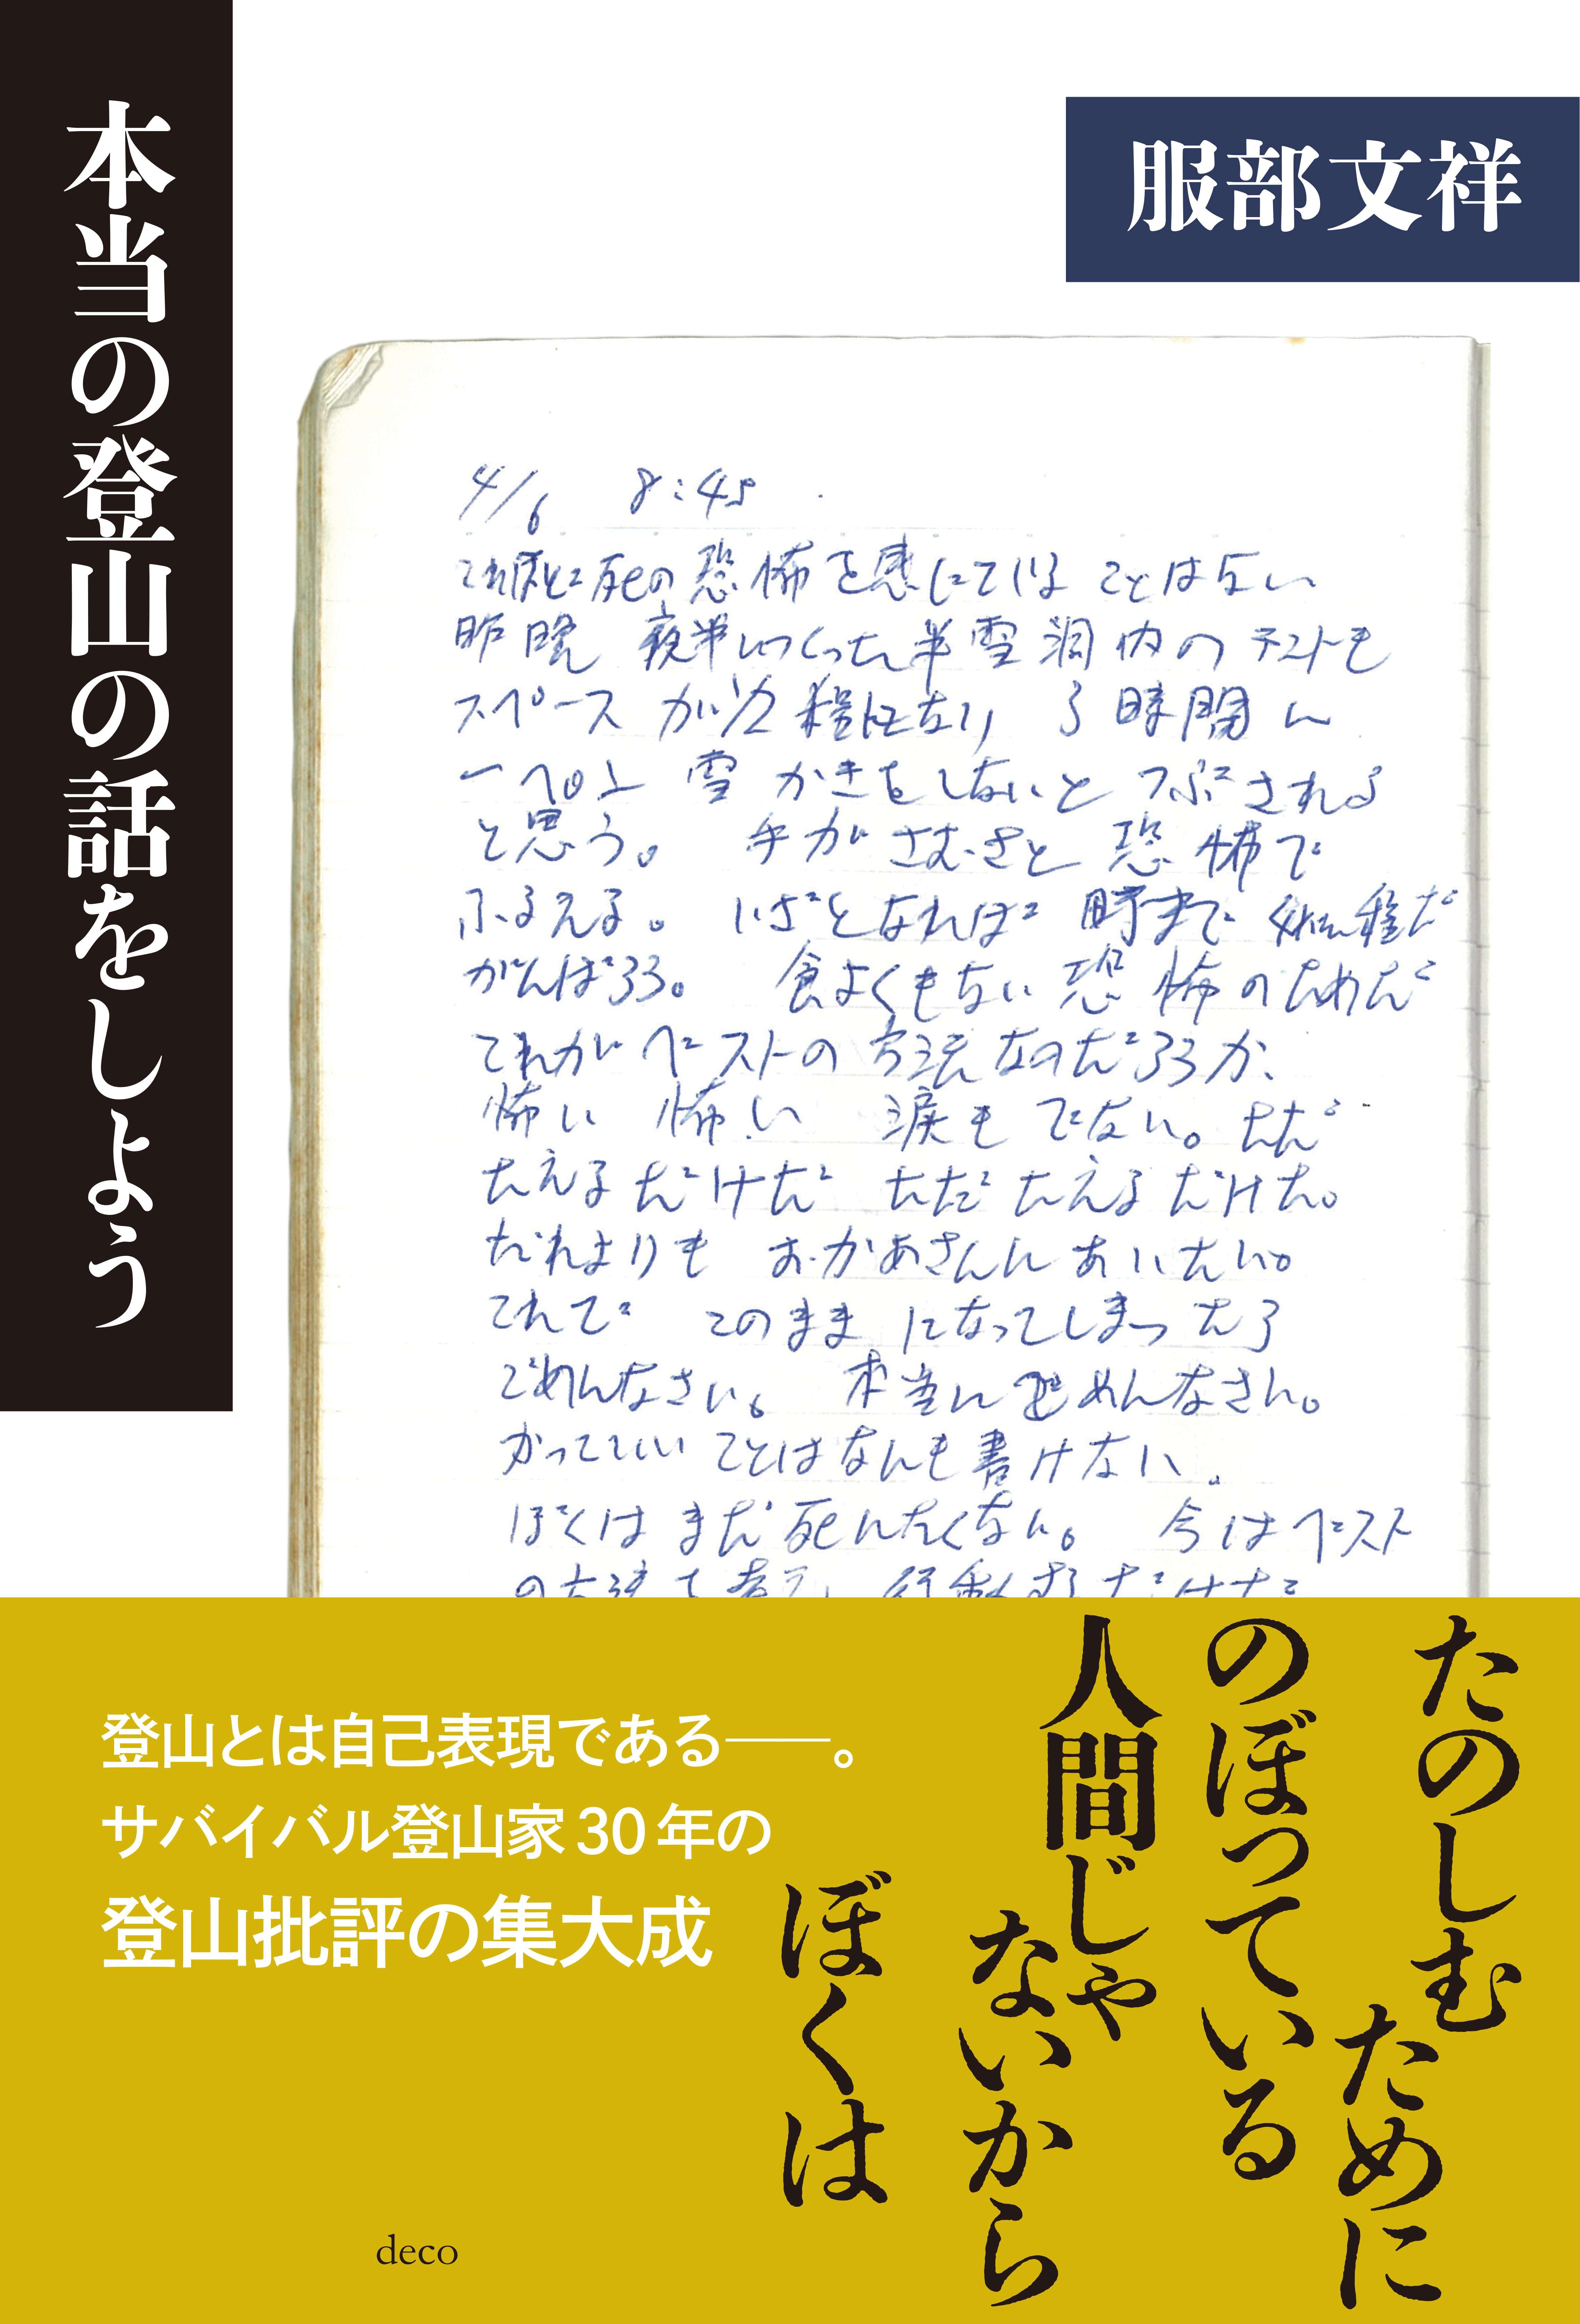 本当の登山の話をしよう
服部文祥
4/6 8:45
これほど死の恐怖を感じていることはない
昨晩 夜半につくった半雪洞内のテントも
スペースが1/2程になり 3時間に
一ぺん 雪かきをしないとつぶされる
と思う。 手がさむさと恐怖で
ふるえる。 いざとなれば
がんばろう。 食よくもない 恐怖のためだ
これがベストの方法なのだろうか、
怖い 怖い 涙もでない。ただ
たえるだけだ ただたえるだけだ。
だれよりも おかあさんにあいたい。
これで このままになってしまったら
ごめんなさい。 本当にごめんなさい。
かっこいいことはなんも書けない。
ぼくはまだ死にたくない。 今はベスト
の方法を考え、行動するだけだ
たのしむために
のぼっている
人間じゃ
ないから
ぼくは
登山とは自己表現である――。
サバイバル登山家30年の
登山批評の集大成
deco